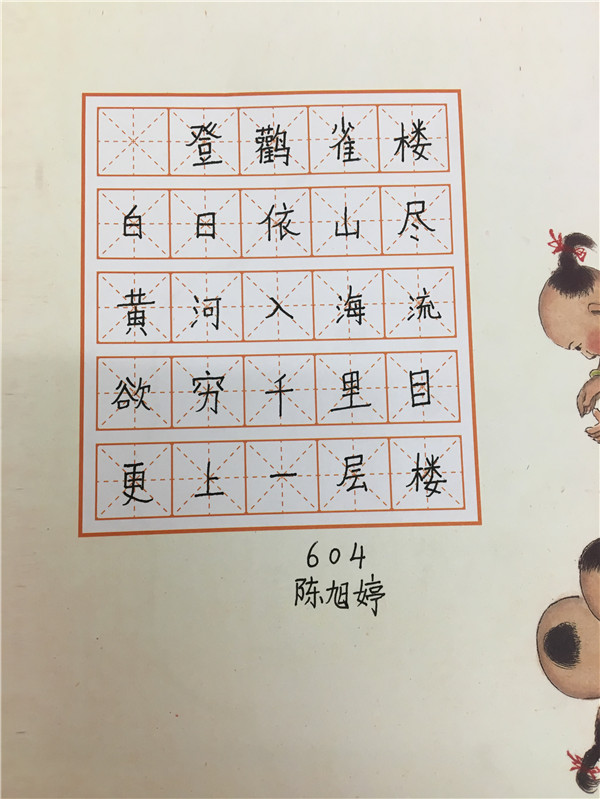 登鹳雀楼
白日依山尽
黄河入海流
欲穷千里目
更上一层楼
604
陈旭婷